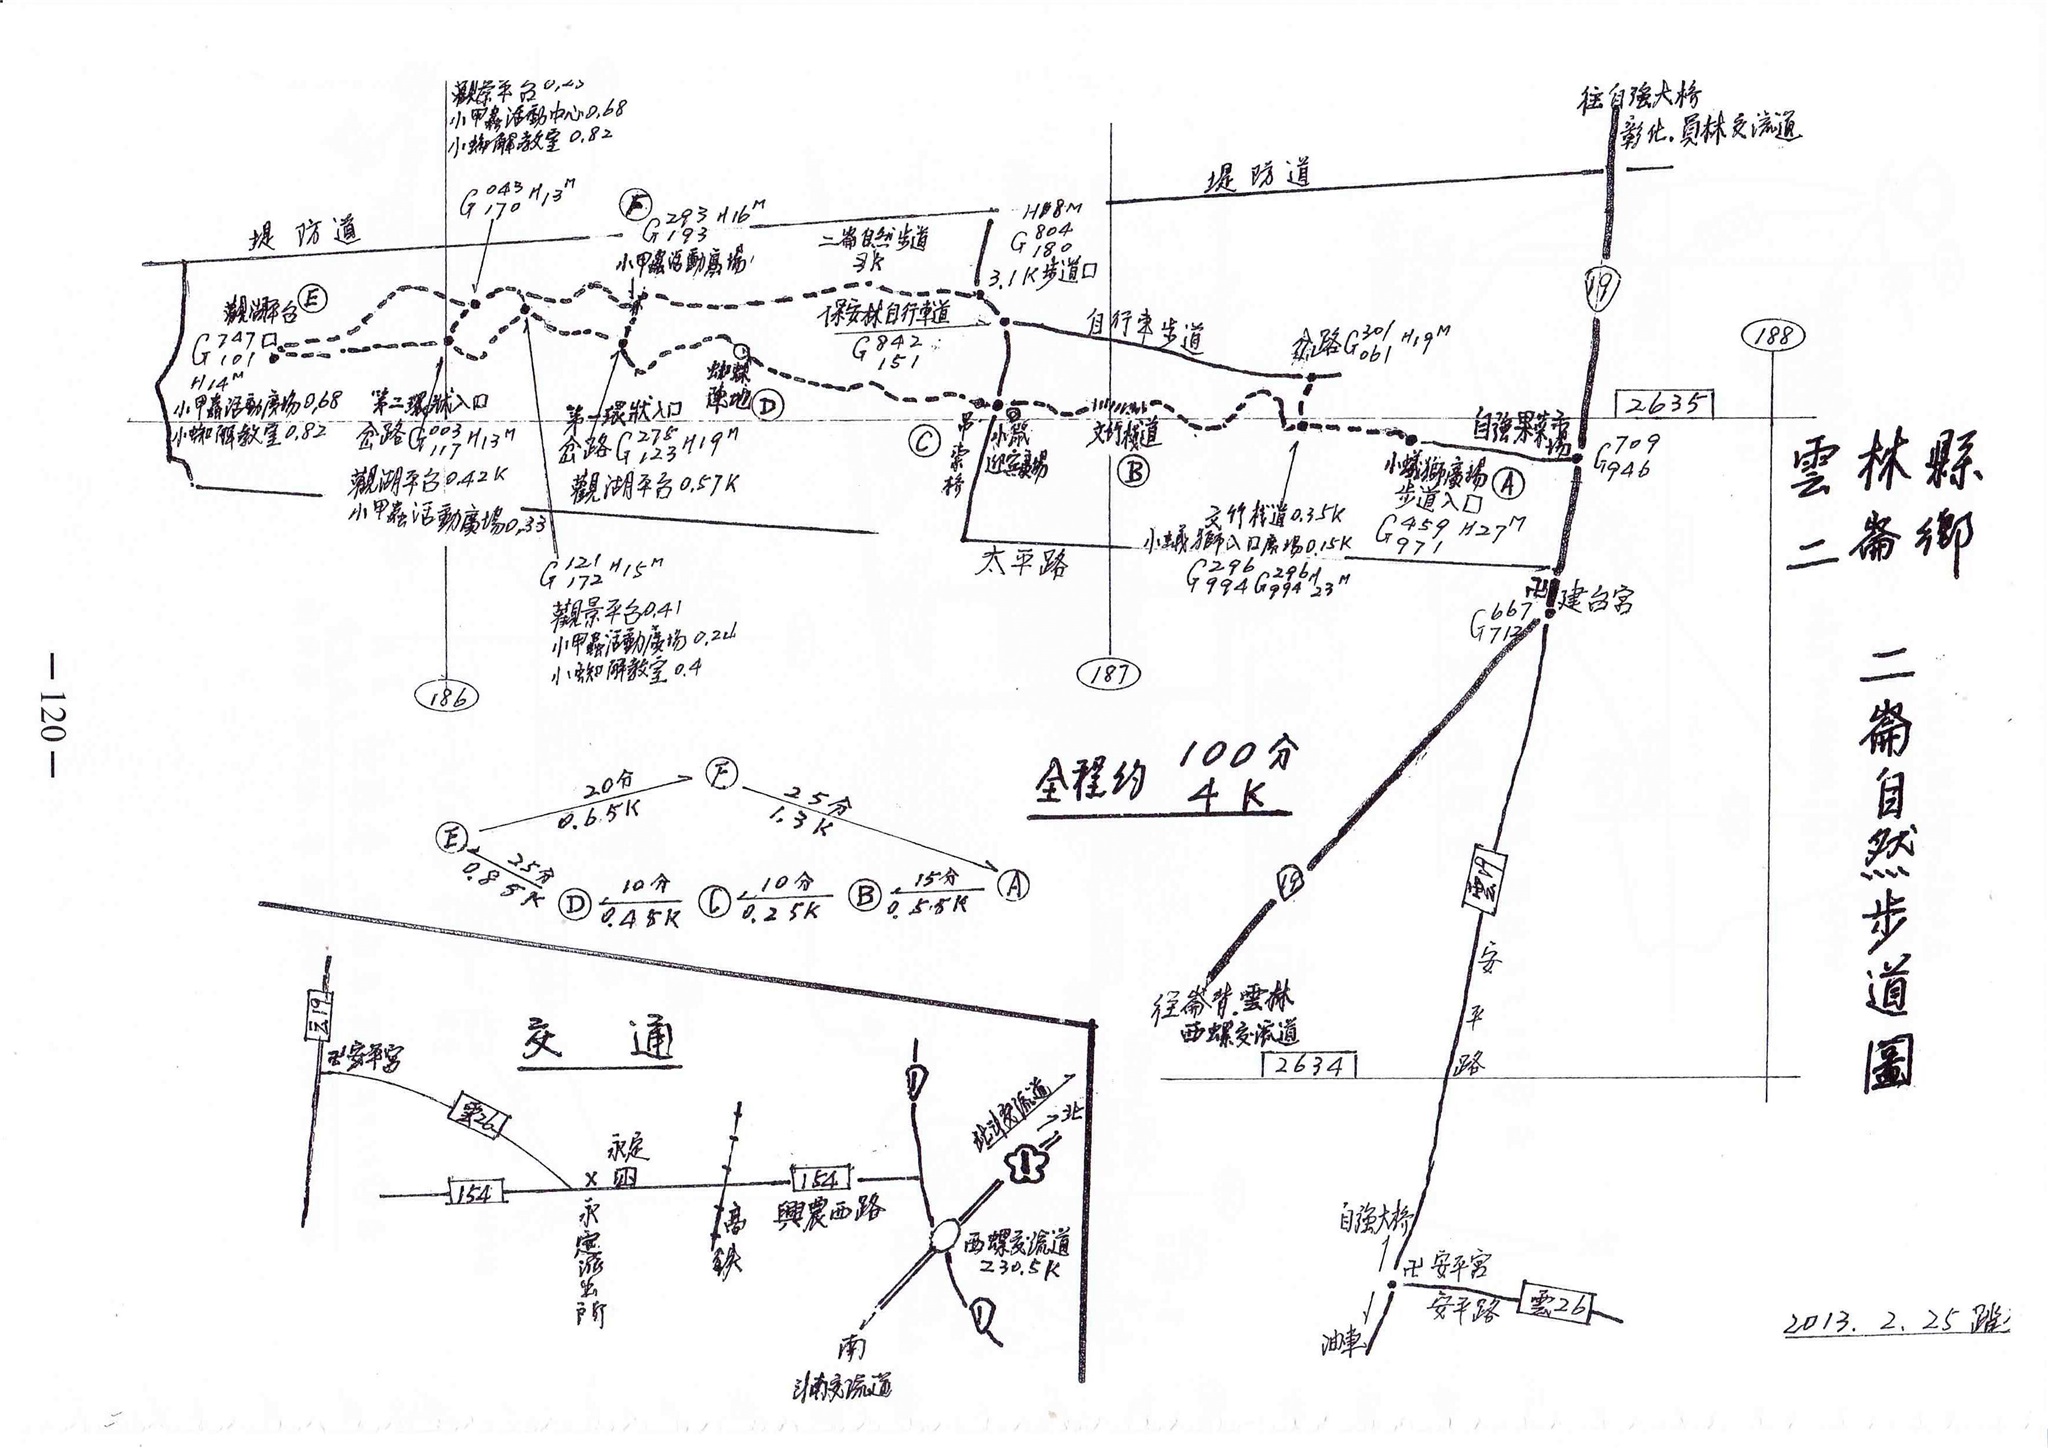 雲林縣
二崙鄉
二崙自然步道圖
往自強大橋
彰化.員林交流道
堤防道
19
188
2635
自強果菜市場
G 709
946
小蟻獅廣場
步道入口
A
G 459 H27M
971
岔路G 301 H19M
061
自行車步道
H18M
G 804
180
3.1K步道口
二崙自然步道
3K
保安林自行車道
G 842
151
F
G 293 H16M
193
小甲蟲活動廣場
小甲蟲活動中心0.68
小蜘解教室0.82
G 043 H13M
170
堤防道
觀湖平台
E
G 747
101
H14M
小甲蟲活動廣場0.68
小蜘解教室0.82
第二環狀入口
岔路G 003 H13M
117
觀湖平台0.42K
小甲蟲活動廣場0.33
第一環狀入口
岔路G 278 H19M
123
觀湖平台0.57K
蜘蛛陣地
D
C
吊索橋
迎賓廣場
B
G 121 H15M
172
觀景平台0.41
小甲蟲活動廣場0.24
小蜘解教室0.4
交竹棧道0.35K
小蟻獅入口廣場0.15K
G 296
994
G 296 H
994 23M
太平路
卍建台宮
G 667
712
186
187
—120—
全程約
100分
4K
F
20分
0.65K
25分
1.3K
E
25分
0.85K
D
10分
0.45K
C
10分
0.25K
B
15分
0.55K
A
19
雲19
安平路
往崙背.雲林
西螺交流道
2634
自強大橋
卍安平宮
安平路
雲26
油車
交通
雲19
卍安平宮
雲26
154
永定
永定派出所
高鐵
154
興農西路
1
北斗交流道
北
1
西螺交流道
230.5K
1
南
斗南交流道
2013.2.25